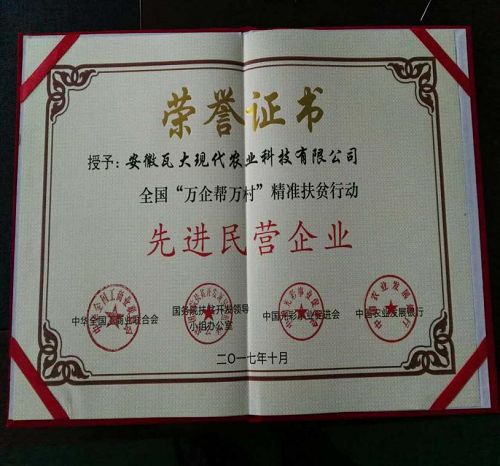 荣誉证书
授予：安徽瓦大现代农业科技有限公司
全国“万企帮万村”精准扶贫行动
先进民营企业
中华全国工商业联合会
国务院扶贫开发领导
小组办公室
中国光彩事业促进会
中国农业发展银行
二〇一七年十月